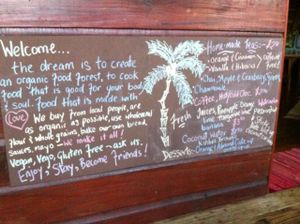 Welcome...
the dream is to create
an organic food forest, to cook
food that is good for your body
& soul. Food that is made with
Love
We buy from local people, are
as organic as possible, use wholemeal
flour & whole grains, bake our own bread,
sauces, mayo - we make it all!
Vegan, Vego, Gluten free - ask us.
Enjoy, Stay, Become Friends!
Home-made Teas:
Orange & Cinnamon
Vanilla & Hibiscus
Chai,
Chamomile
Coffee, Hot Choc
Fresh
Juices: Pineapple,
banana
Coconut Water
Desserts:
Cake
Orange & Almond